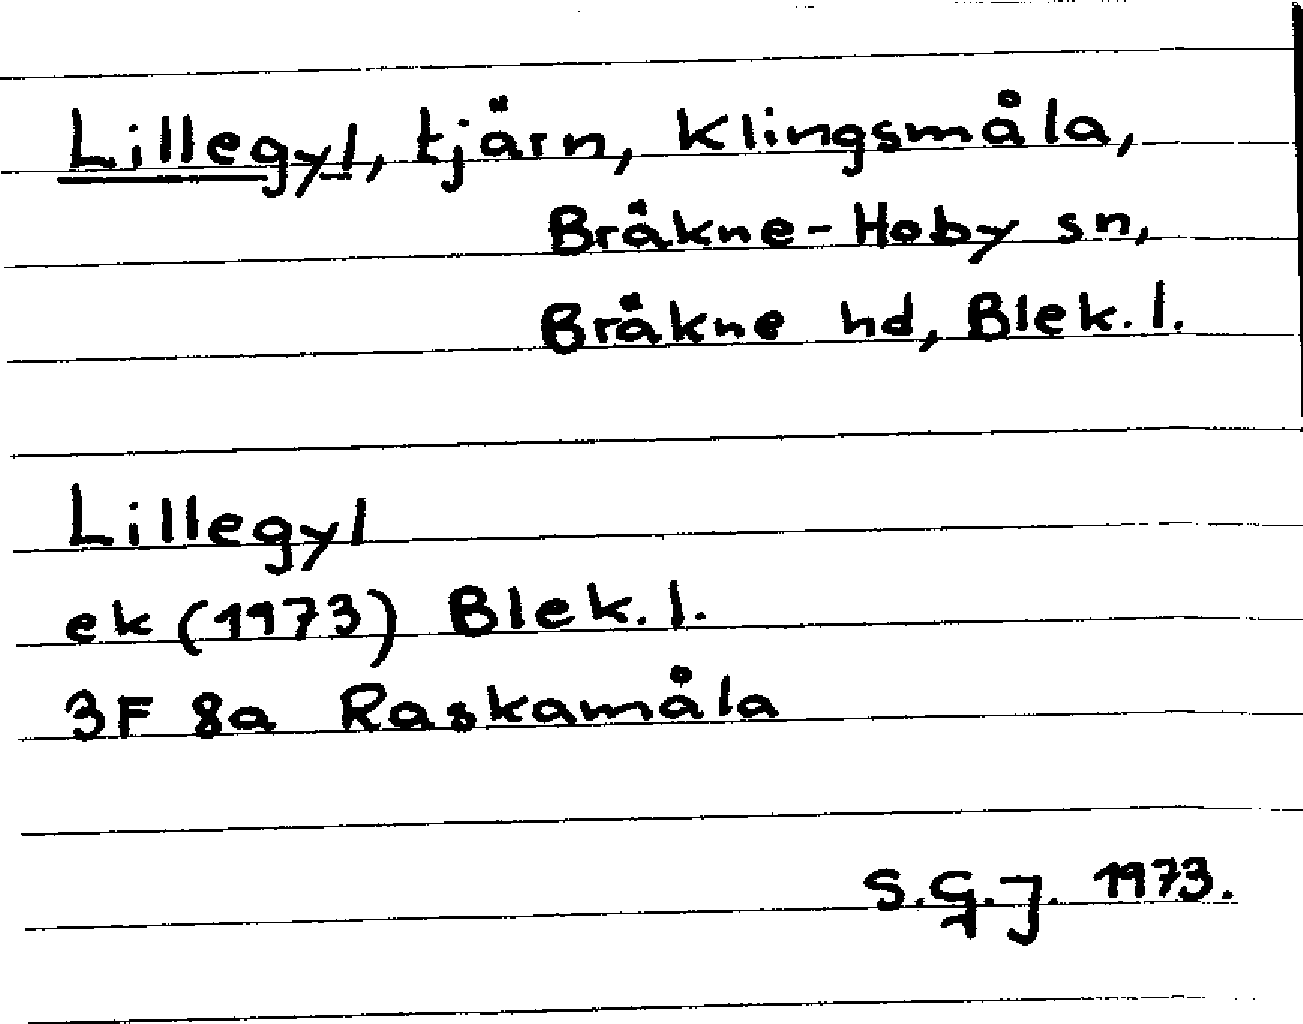 Lillegyl, tjärn, Klingsmåla,
Bräkne-Hoby sn,
Bräkne hd, Blek. l.
Lillegyl
ek (1973) Blek. l.
3F 8a Raskamåla
S.G.J. 1973.